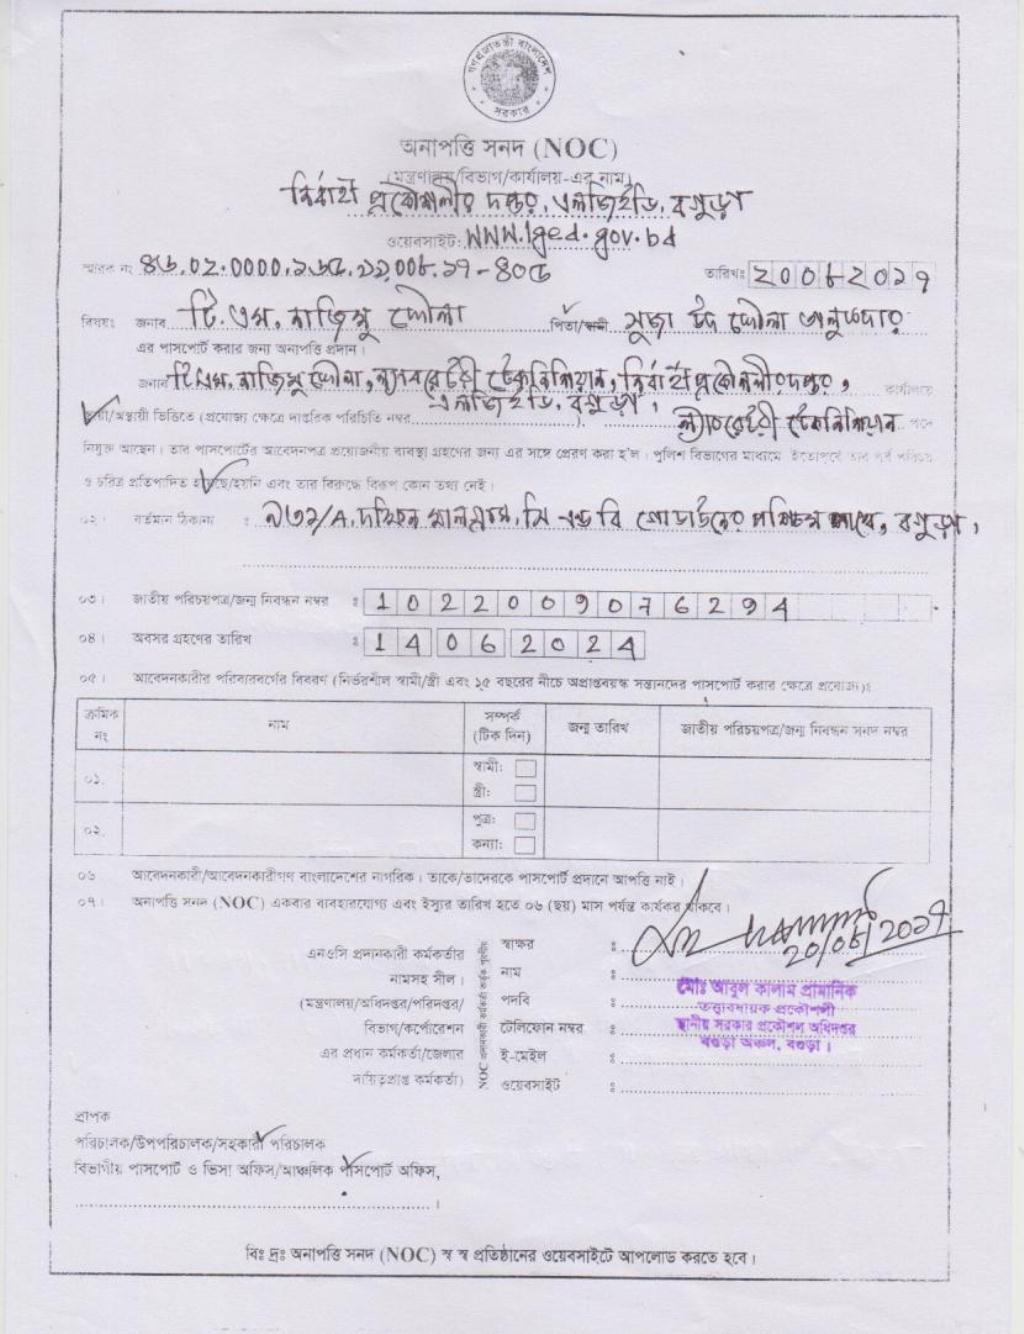 গণপ্রজাতন্ত্রী বাংলাদেশ
সরকার
অনাপত্তি সনদ (NOC)
(মন্ত্রণালয়/বিভাগ/কার্যালয়-এর নাম)
নির্বাহী প্রকৌশলীর দপ্তর, এলজিইডি, বগুড়া
ওয়েবসাইট: www.lged.gov.bd
স্মারক নং ৪৬.০২.০০০০. ২২.০০৮.১৭-৪০৫
তারিখঃ ২০০৮২০১৭
বিষয়ঃ জনাব টি.এম. নাজিমু দ্দৌলা পিতা/স্বামী সুজা উদ দ্দৌলা তালুকদার
এর পাসপোর্ট করার জন্য অনাপত্তি প্রদান।
জনাব টি.এম. নাজিমু দ্দৌলা, ল্যাবরেটরী টেকনিশিয়ান, নির্বাহী প্রকৌশলীর দপ্তর, কার্যালয়ে
এলজিইডি, বগুড়া,
স্থায়ী/অস্থায়ী ভিত্তিতে (প্রযোজ্য ক্ষেত্রে দাপ্তরিক পরিচিতি নম্বর ) ল্যাবরেটরী টেকনিশিয়ান পদে
নিযুক্ত আছেন। তার পাসপোর্টের আবেদনপত্র প্রয়োজনীয় ব্যবস্থা গ্রহণের জন্য এর সঙ্গে প্রেরণ করা হ'ল। পুলিশ বিভাগের মাধ্যমে ইতোপূর্বে তার পূর্ব পরিচয়
ও চরিত্র প্রতিপাদিত হয়েছে/হয়নি এবং তার বিরুদ্ধে বিরূপ কোন তথ্য নেই।
০২। বর্তমান ঠিকানা : ৯৩২/A, দক্ষিন মালগ্রাম, সি এন্ড বি গোডাউনের পশ্চিম পাশে, বগুড়া,
০৩। জাতীয় পরিচয়পত্র/জন্ম নিবন্ধন নম্বর ঃ 1022009076294
০৪। অবসর গ্রহণের তারিখ ঃ 14062024
০৫। আবেদনকারীর পরিবারবর্গের বিবরণ (নির্ভরশীল স্বামী/স্ত্রী এবং ১৫ বছরের নীচে অপ্রাপ্তবয়স্ক সন্তানদের পাসপোর্ট করার ক্ষেত্রে প্রযোজ্য)ঃ
ক্রমিক নং নাম সম্পর্ক (টিক দিন) জন্ম তারিখ জাতীয় পরিচয়পত্র/জন্ম নিবন্ধন সনদ নম্বর
০১. স্বামী:
স্ত্রী:
০২. পুত্র:
কন্যা:
০৬ আবেদনকারী/আবেদনকারীগণ বাংলাদেশের নাগরিক। তাকে/তাদেরকে পাসপোর্ট প্রদানে আপত্তি নাই।
০৭। অনাপত্তি সনদ (NOC) একবার ব্যবহারযোগ্য এবং ইস্যুর তারিখ হতে ০৬ (ছয়) মাস পর্যন্ত কার্যকর থাকবে।
20/08/2017
এনওসি প্রদানকারী কর্মকর্তার
নামসহ সীল।
(মন্ত্রণালয়/অধিদপ্তর/পরিদপ্তর/
বিভাগ/কর্পোরেশন
এর প্রধান কর্মকর্তা/জেলার
দায়িত্বপ্রাপ্ত কর্মকর্তা)
NOC প্রদানকারী কর্মকর্তা কর্তৃক পূরণীয়
স্বাক্ষর ঃ
নাম ঃ মোঃ আবুল কালাম প্রামানিক
পদবি ঃ তত্ত্বাবধায়ক প্রকৌশলী
টেলিফোন নম্বর ঃ স্থানীয় সরকার প্রকৌশল অধিদপ্তর
বগুড়া অঞ্চল, বগুড়া।
ই-মেইল ঃ
ওয়েবসাইট ঃ
প্রাপক
পরিচালক/উপপরিচালক/সহকারী পরিচালক
বিভাগীয় পাসপোর্ট ও ভিসা অফিস/আঞ্চলিক পাসপোর্ট অফিস,
বিঃ দ্রঃ অনাপত্তি সনদ (NOC) স্ব স্ব প্রতিষ্ঠানের ওয়েবসাইটে আপলোড করতে হবে।